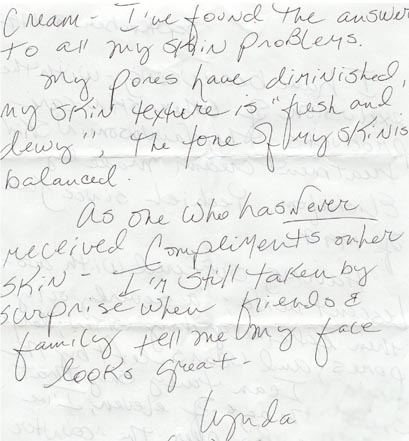 Cream - I've found the answer
to all my skin problems.
My pores have diminished,
my skin texture is "fresh and
dewy", the tone of my skin is
balanced.
As one who has Never
received Compliments on her
skin - I'm still taken by
surprise when friends &
family tell me my face
looks great -
Lynda